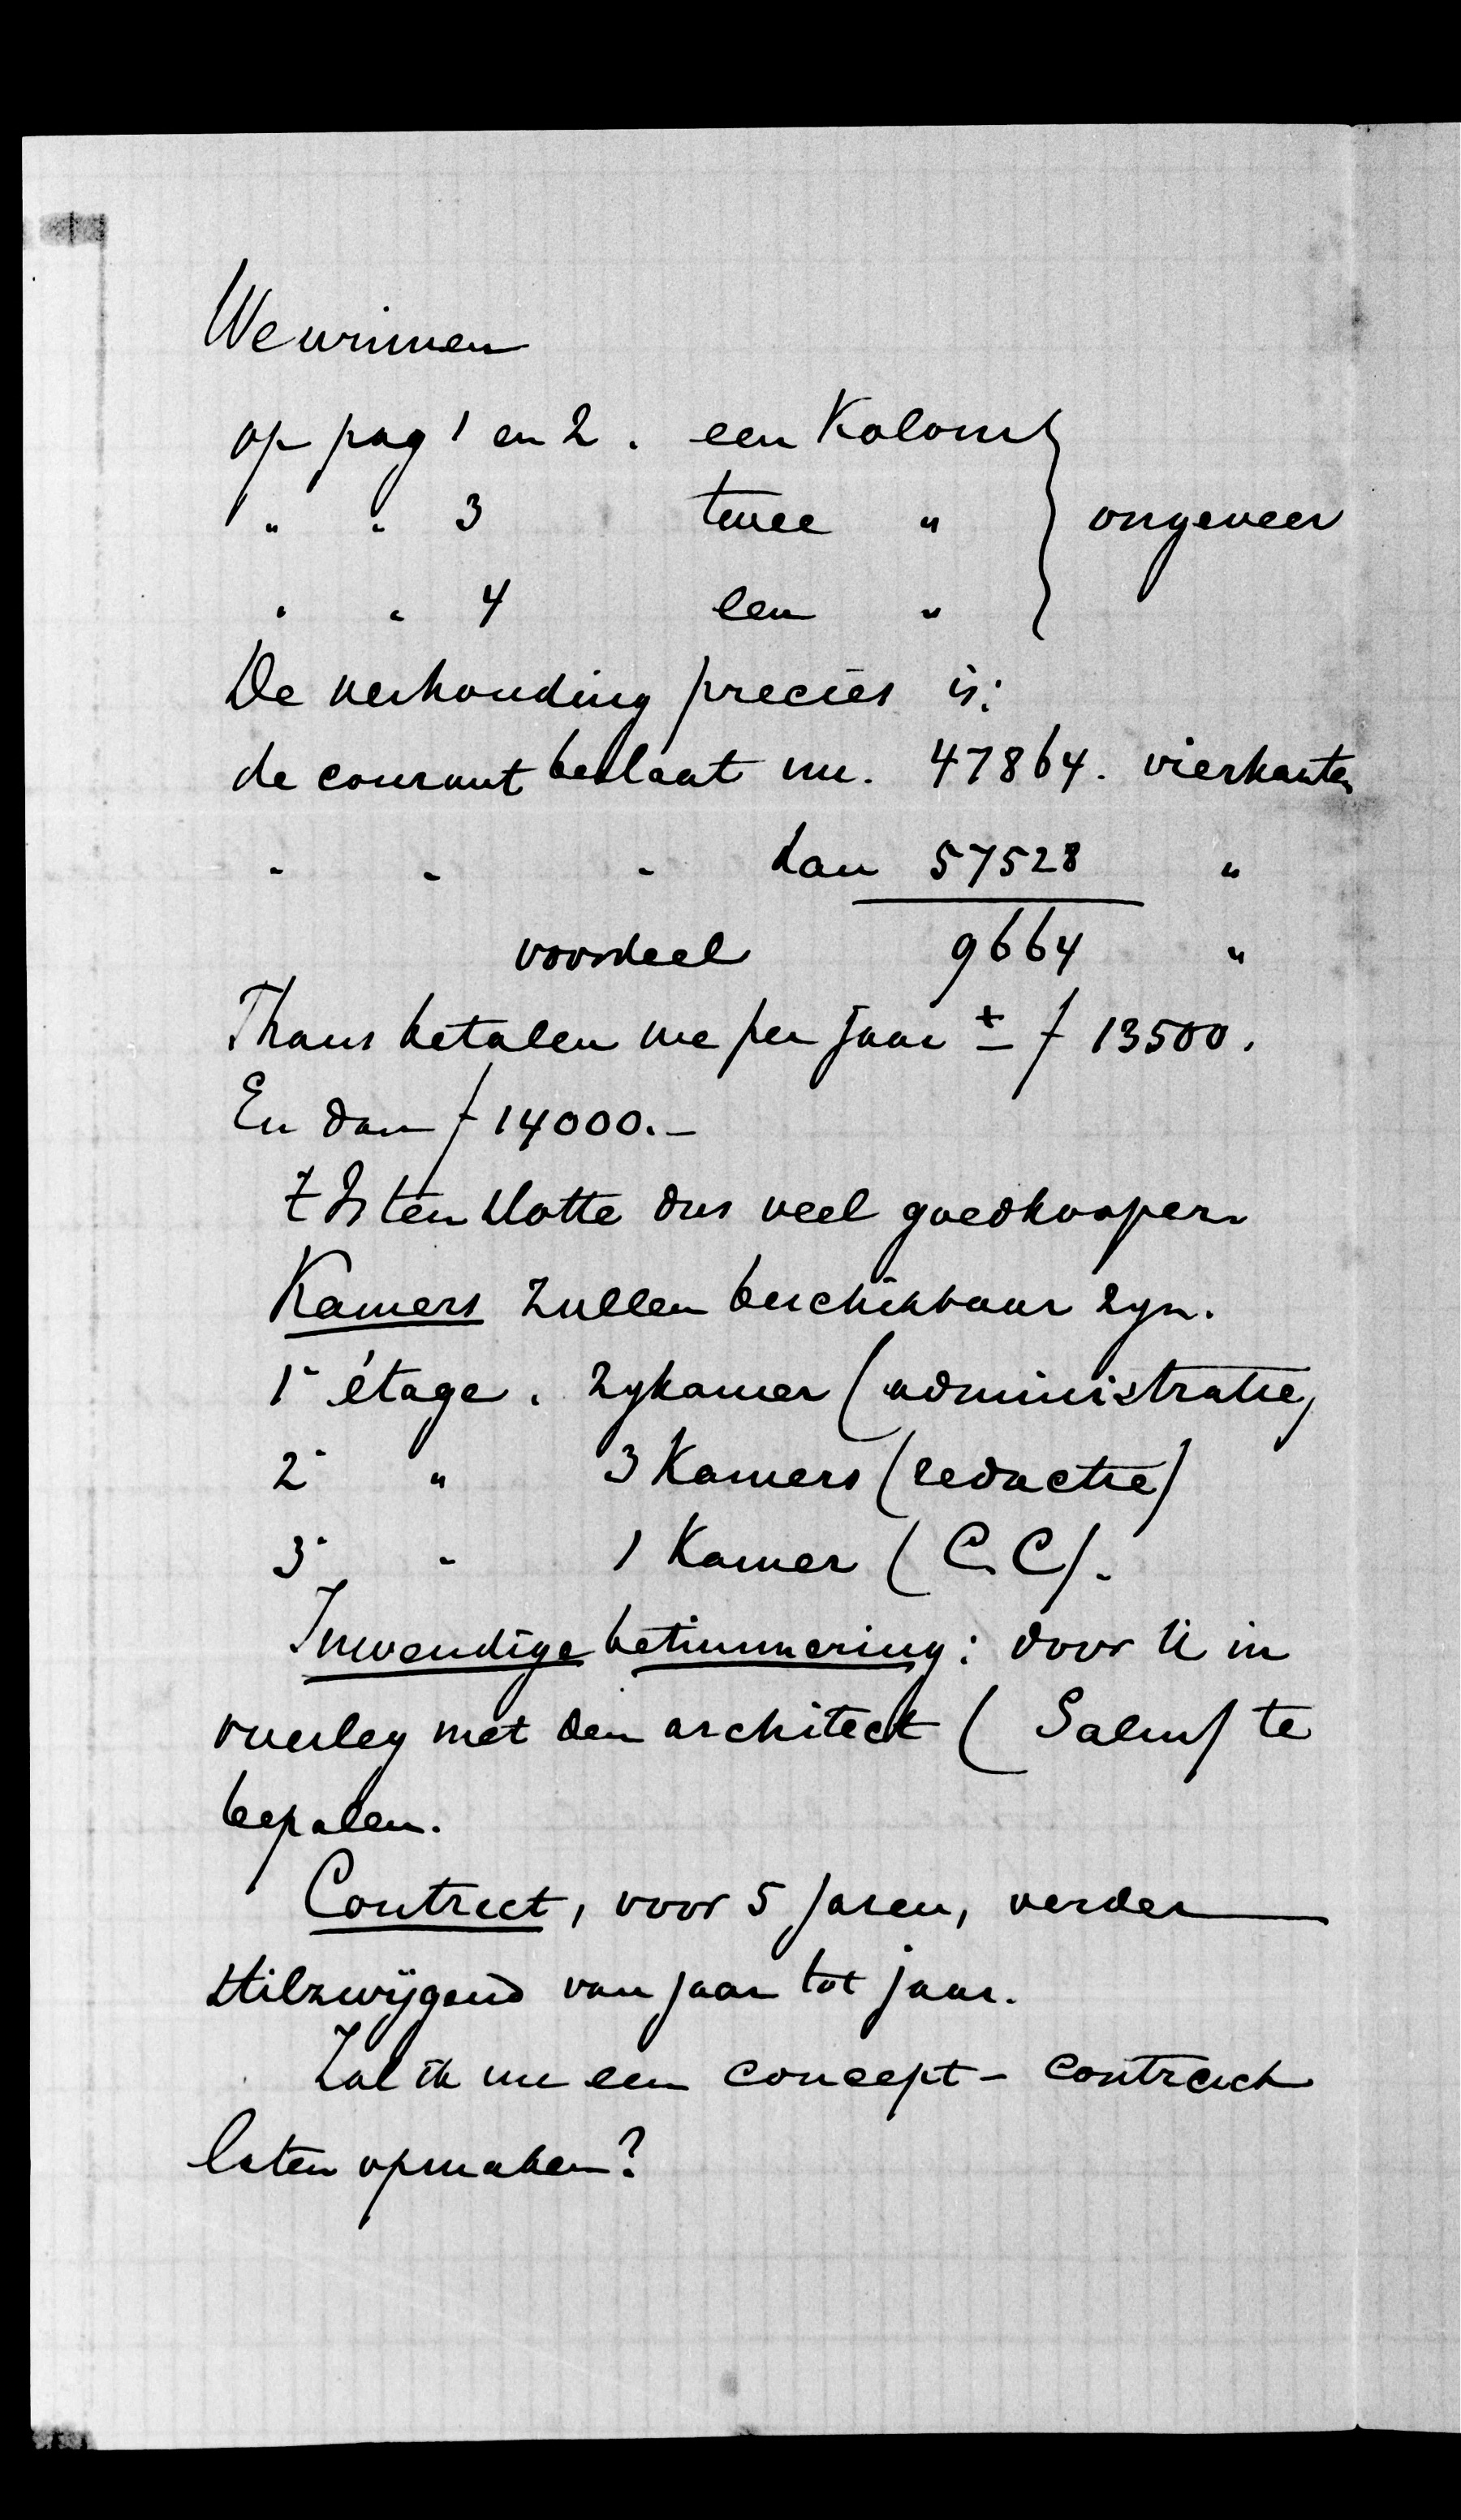 We winnen
op pag 1 en 2. een Kolom } ongeveer
" " 3 twee "
" " 4 een "
De verhouding precies is:
de courant beslaat nu. 47864. vierkanten
" " " dan 57528 "
voordeel 9664 "
Thans betalen we per jaar ± f 13500.
En dan f 14000.-
't Is ten slotte dus veel goedkooper.
Kamers zullen beschikbaar zyn.
1e étage. zykamer (administratie)
2e " 3 Kamers (redactie)
3e " 1 Kamer (C.C).
Inwendige betimmering: door U in
overleg met den architect (Salm) te
bepalen.
Contract, voor 5 jaren, verder
stilzwijgend van jaar tot jaar.
Zal ik nu een concept-contract
laten opmaken?